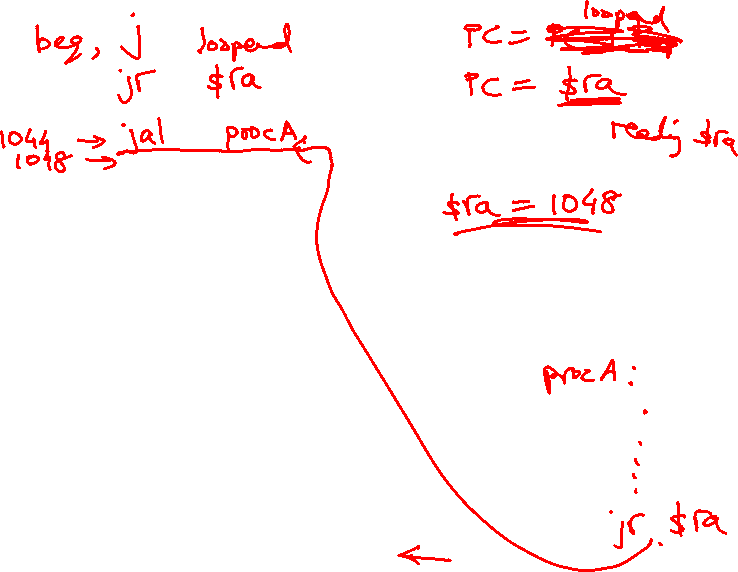 beq, j loopend
jr $ra
1044 → jal procA
1048 →
PC = loopend
PC = $ra
reading $ra
$ra = 1048
procA:
jr $ra